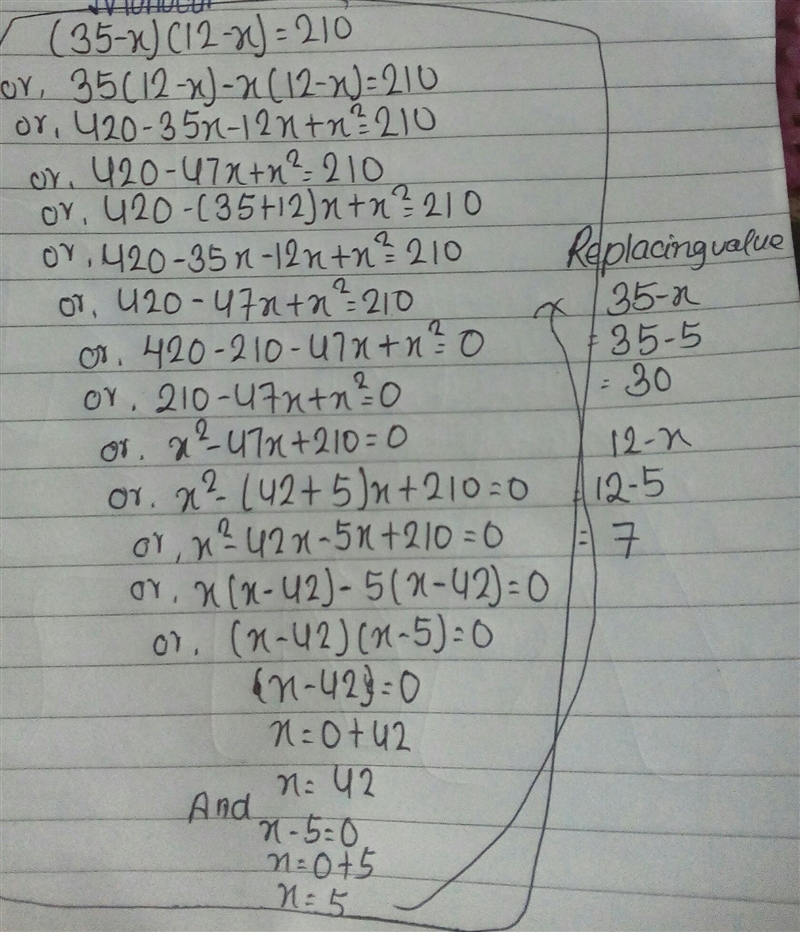 (35-x)(12-x)=210
or, 35(12-x)-x(12-x)=210
or, 420-35x-12x+x²=210
or, 420-47x+x²=210
or, 420-(35+12)x+x²=210
or, 420-35x-12x+x²=210
or, 420-47x+x²=210
or, 420-210-47x+x²=0
or, 210-47x+x²=0
or, x²-47x+210=0
or, x²-(42+5)x+210=0
or, x²-42x-5x+210=0
or, x(x-42)-5(x-42)=0
or, (x-42)(x-5)=0
(x-42)=0
x=0+42
x=42
And
x-5=0
x=0+5
x=5
Replacing value
35-x
=35-5
=30
12-x
=12-5
=7